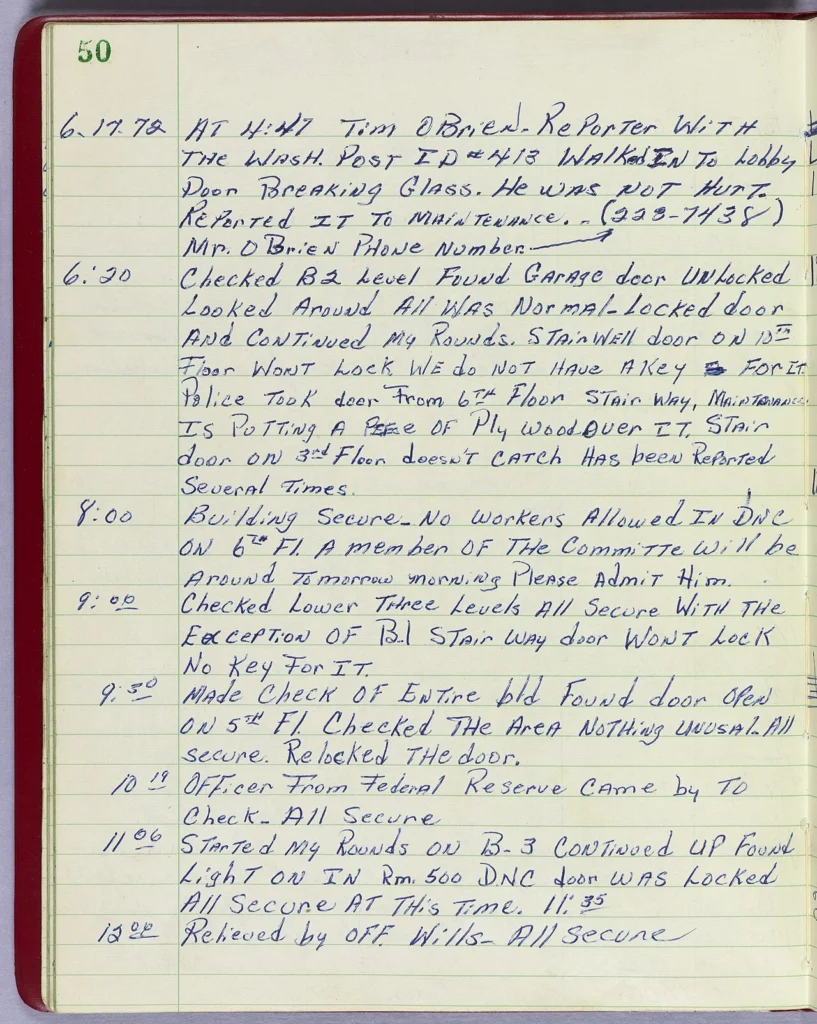 50
6.17.72 AT 4:47 Tim OBrien-Reporter With
The Wash. Post ID #413 Walked In To Lobby
Door Breaking Glass. He was not Hurt.
Reported it to Maintenance. - (223-7438)
Mr. OBrien Phone Number
6:20 Checked B2 Level Found Garage door Unlocked
Looked Around All Was Normal-Locked door
And Continued My Rounds. Stairwell door on 10th
Floor Wont Lock We do not Have A Key For It.
Police Took door From 6th Floor Stair Way, Maintenance
Is Putting A Of Ply wood Over It. Stair
door on 3rd Floor doesn't catch Has been Reported
Several Times.
8:00 Building Secure-No workers Allowed In DNC
on 6th Fl. A member of The Committe will be
Around Tomorrow morning Please Admit Him.
9:00 Checked Lower Three Levels All Secure With The
Exception of B.1 Stair way door Wont Lock
No Key For It.
9:30 Made Check of Entire bld Found door Open
on 5th Fl. Checked The Area Nothing Unusal-All
secure. Relocked The door.
10 19 Officer From Federal Reserve Came by To
Check-All Secure
11 06 Started My Rounds on B-3 Continued Up Found
Light on in Rm. 500 DNC door was Locked
All Secure At This Time. 11:35
12 00 Relieved by Off. Wills-All Secure